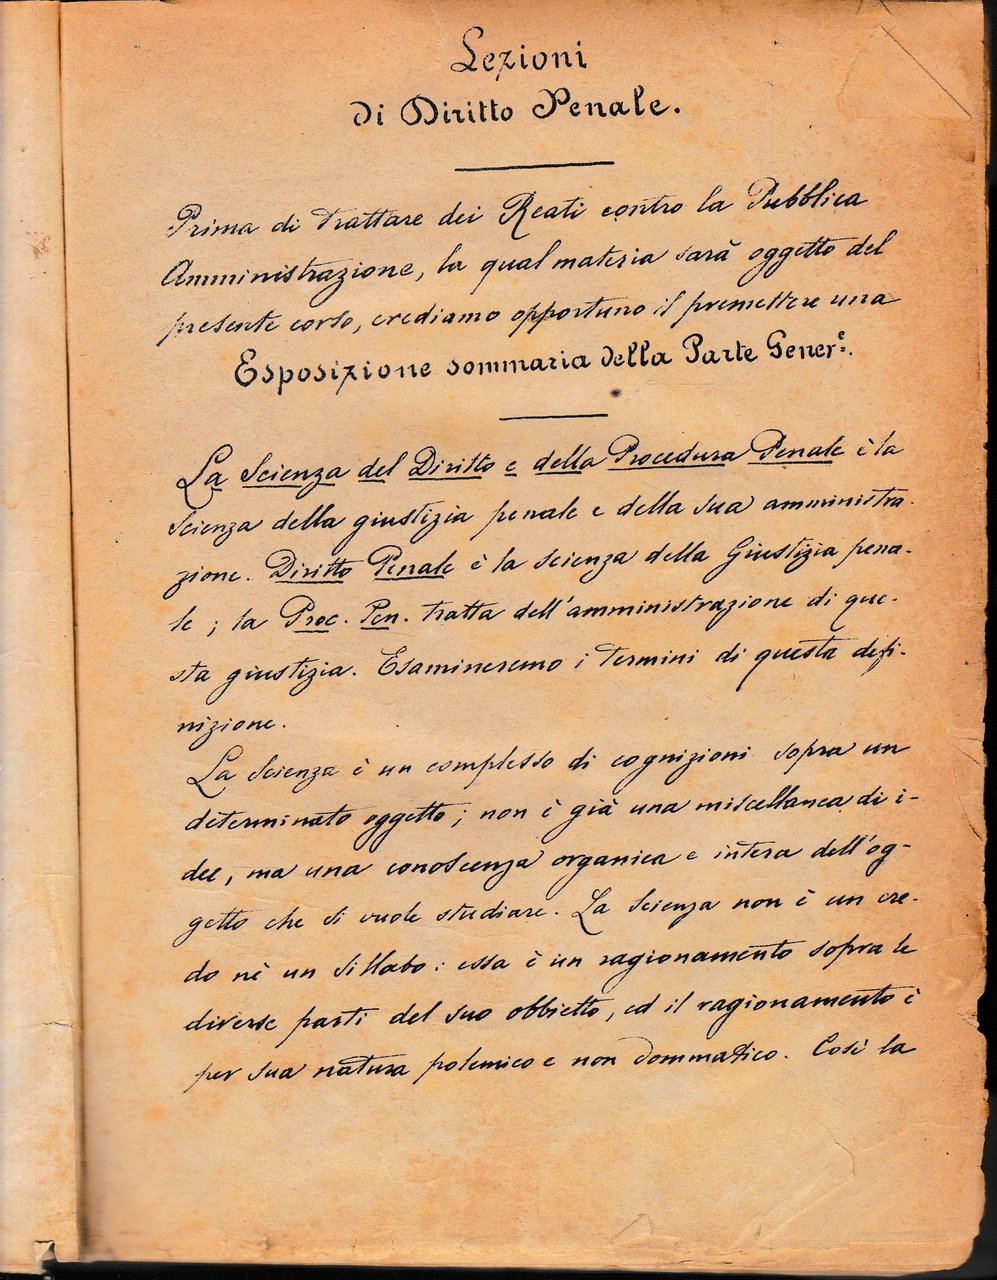 Lezioni
di Diritto Penale.
Prima di trattare dei Reati contro la Pubblica
Amministrazione, la qual materia sarà oggetto del
presente corso, crediamo opportuno il premettere una
Esposizione sommaria della Parte Gener.e
La Scienza del Diritto e della Procedura Penale è la
scienza della giustizia penale e della sua amministra-
zione. Diritto Penale è la scienza della Giustizia pena-
le; la Proc. Pen. tratta dell'amministrazione di que-
sta giustizia. Esamineremo i termini di questa defi-
nizione.
La scienza è un complesso di cognizioni sopra un
determinato oggetto; non è già una miscellanea di i-
dee, ma una conoscenza organica e intera dell'og-
getto che si vuole studiare. La scienza non è un cre-
do nè un sillabo: essa è un ragionamento sopra le
diverse parti del suo obbietto, ed il ragionamento è
per sua natura polemico e non dommatico. Così la